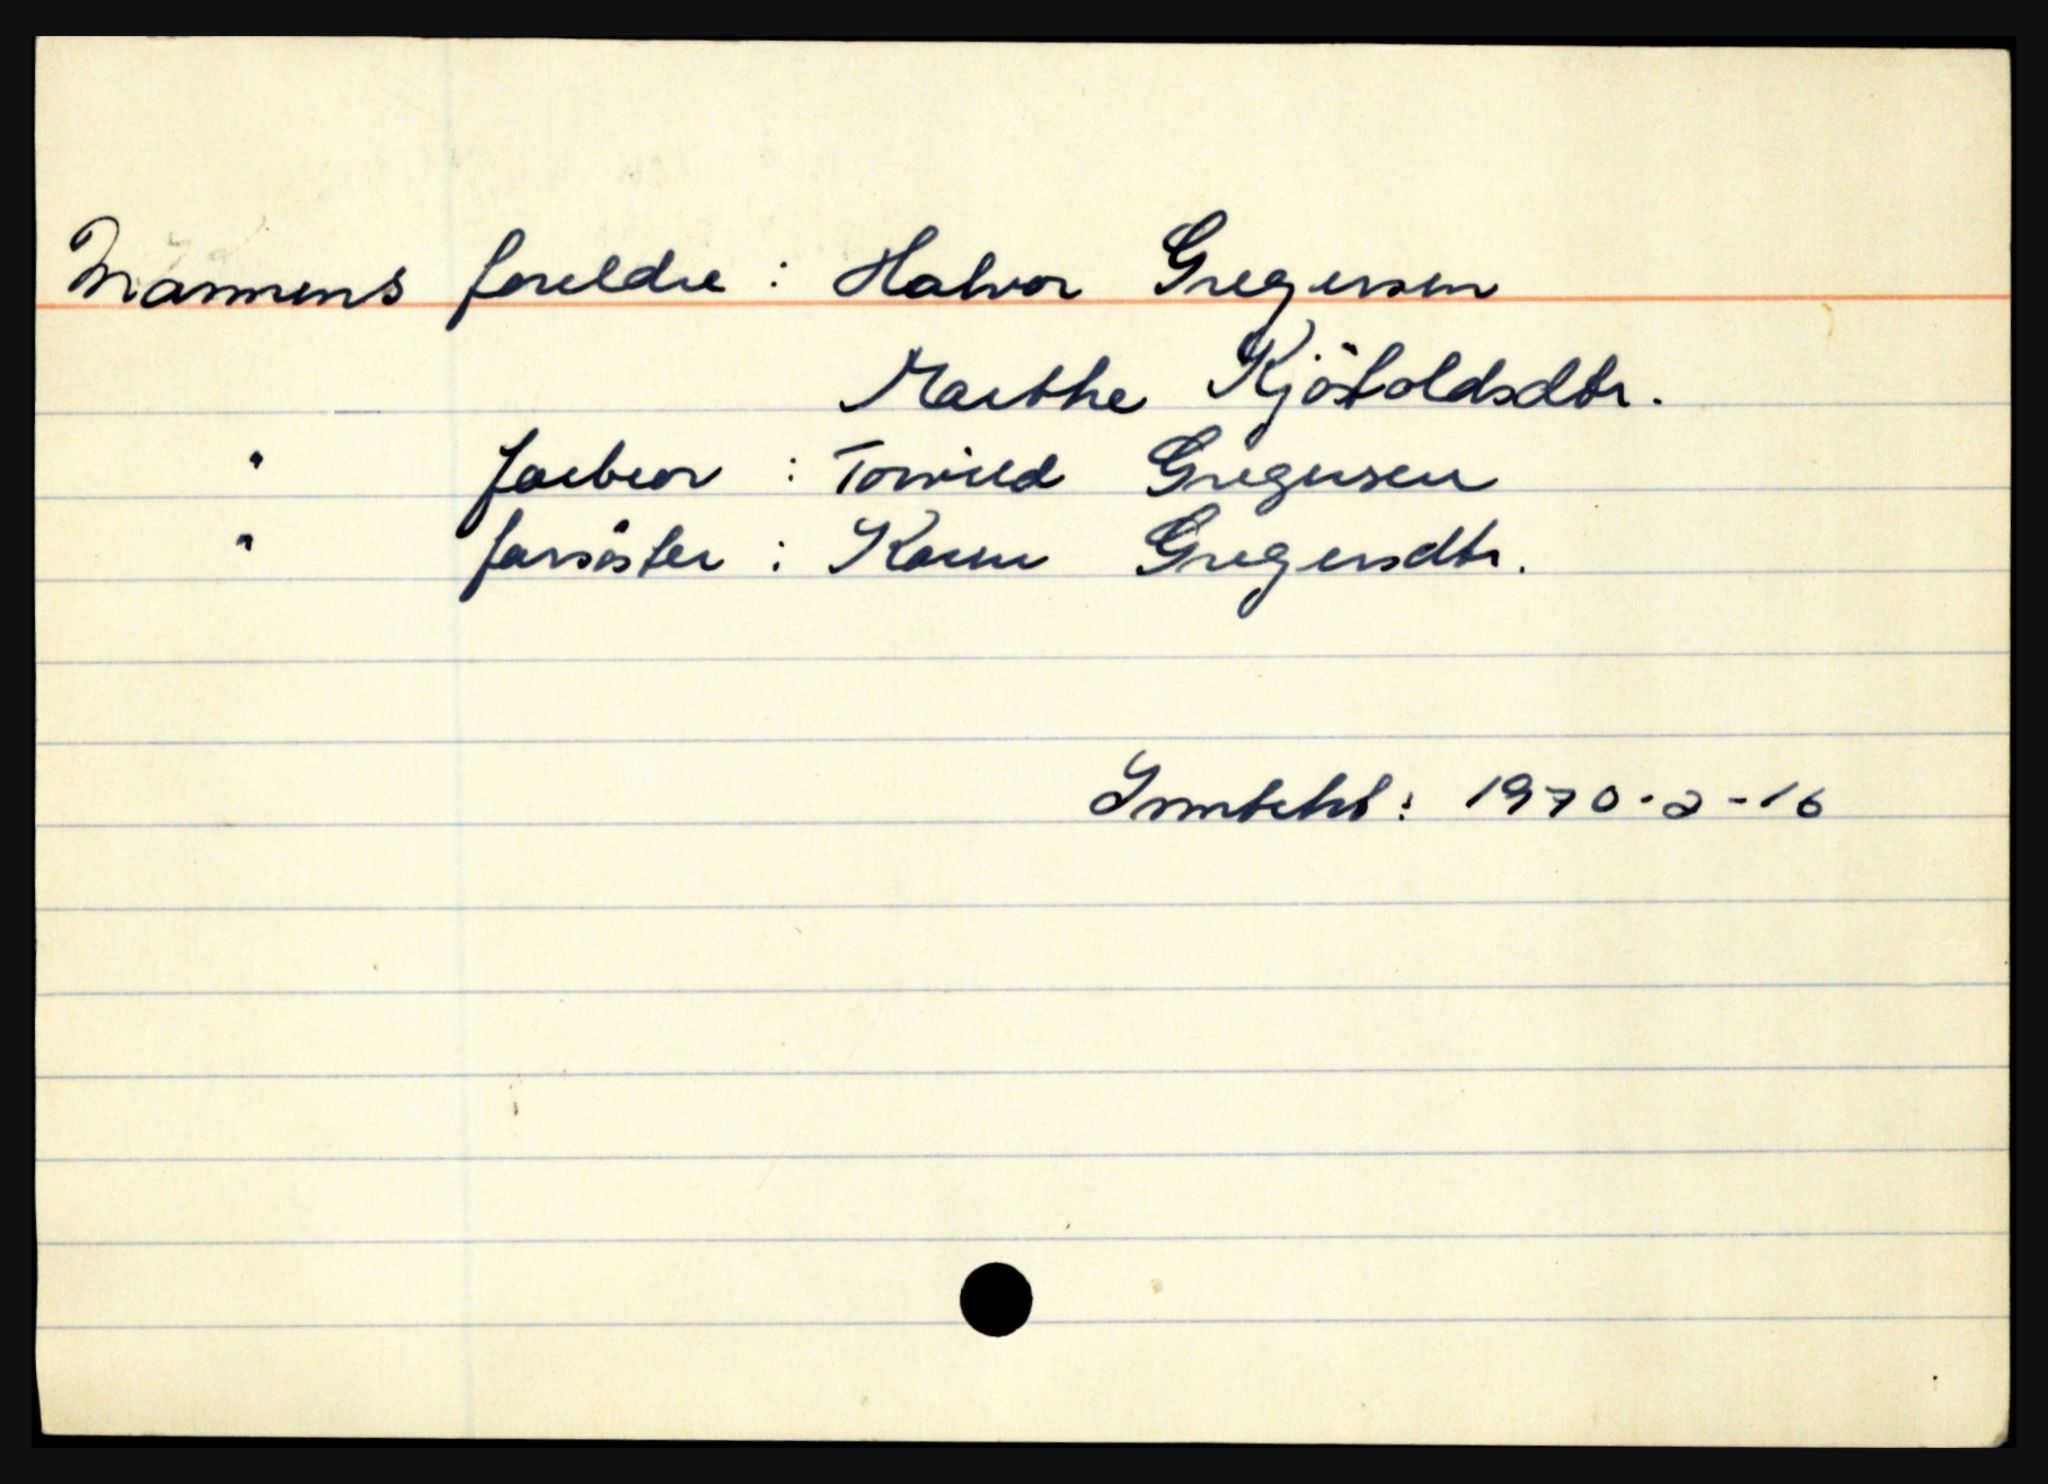 Mannens foreldre : Halvor Gregersen
Marthe Kjöstoldsdtr.
" farbror : Torvild Gregersen
" farsöster : Karen Gregersdtr.
1970-2-16